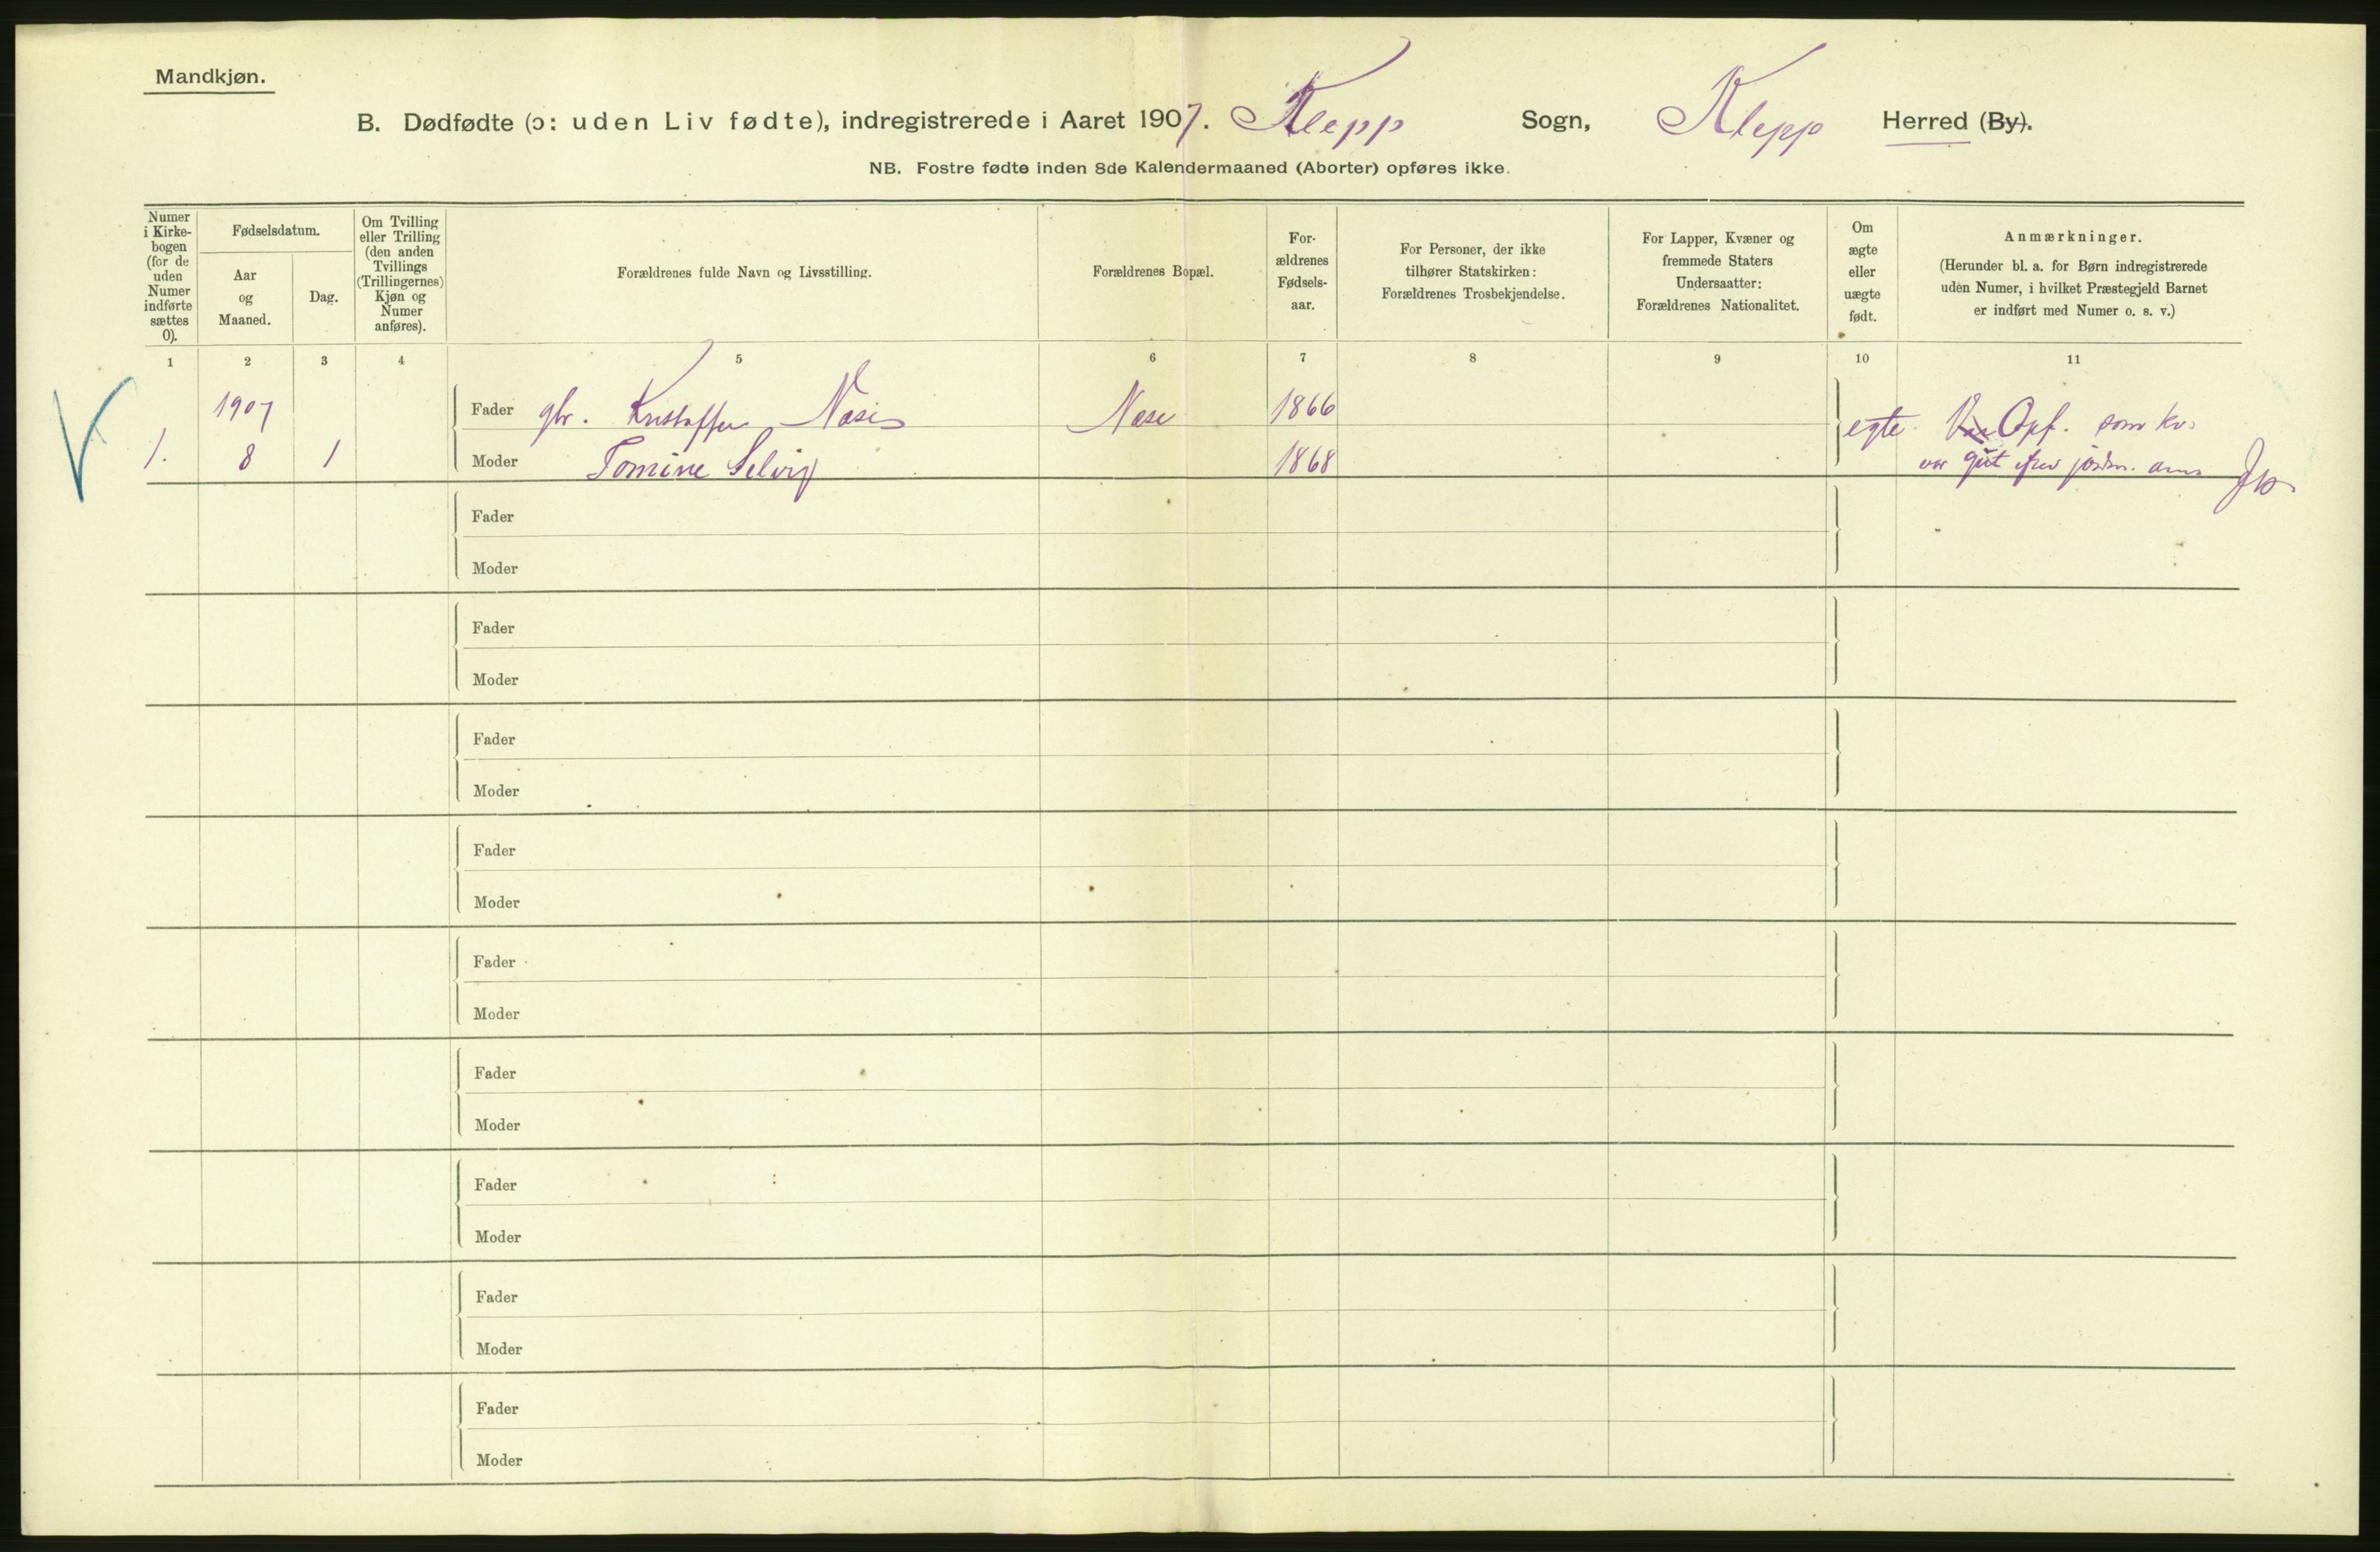 Mandkjøn.
B. Dødfødte (ɔ: uden Liv fødte), indregistrerede i Aaret 1907. Klepp Sogn, Klepp Herred (By).
NB. Fostre fødte inden 8de Kalendermaaned (Aborter) opføres ikke.
Numer
i Kirke-
bogen
(for de
uden
Numer
indførte
sættes
0).
Fødselsdatum.
Aar
og
Maaned.
Dag.
Om Tvilling
eller Trilling
(den anden
Tvillings
(Trillingernes)
Kjøn og
Numer
anføres).
Forældrenes fulde Navn og Livsstilling.
Forældrenes Bopæl.
For-
ældrenes
Fødsels-
aar.
For Personer, der ikke
tilhører Statskirken:
Forældrenes Trosbekjendelse.
For Lapper, Kvæner og
fremmede Staters
Undersaatter:
Forældrenes Nationalitet.
Om
ægte
eller
uægte
født.
Anmærkninger.
(Herunder bl. a. for Børn indregistrerede
uden Numer, i hvilket Præstegjeld Barnet
er indført med Numer o. s. v.)
1 2 3 4 5 6 7 8 9 10 11
1907 Fader gbr. Kristoffer Næse Næse 1866
egte Opf. som kv.
1. 8 1 Moder Tomine Selvig 1868
var gut
Fader
Moder
Fader
Moder
Fader
Moder
Fader
Moder
Fader
Moder
Fader
Moder
Fader
Moder
Fader
Moder
Fader
Moder